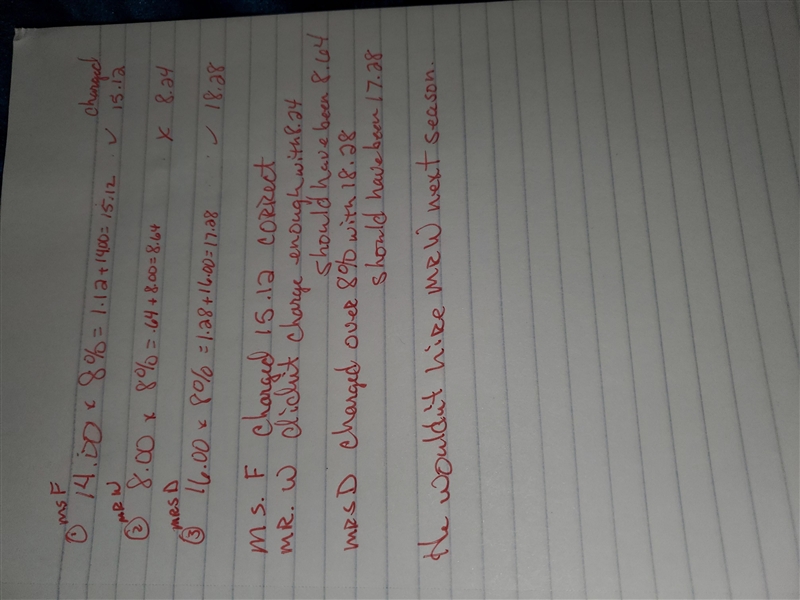 Ms F
① 14.00 x 8% = 1.12 + 14.00 = 15.12 ✓ charged 15.12
MR W
② 8.00 x 8% = .64 + 8.00 = 8.64 x 8.24
MRS D
③ 16.00 x 8% = 1.28 + 16.00 = 17.28 ✓ 18.28
Ms. F charged 15.12 correct
MR. W didnt charge enough with 8.24
should have been 8.64
MRS D charged over 8% with 18.28
should have been 17.28
He wouldnt hire MR W next season.